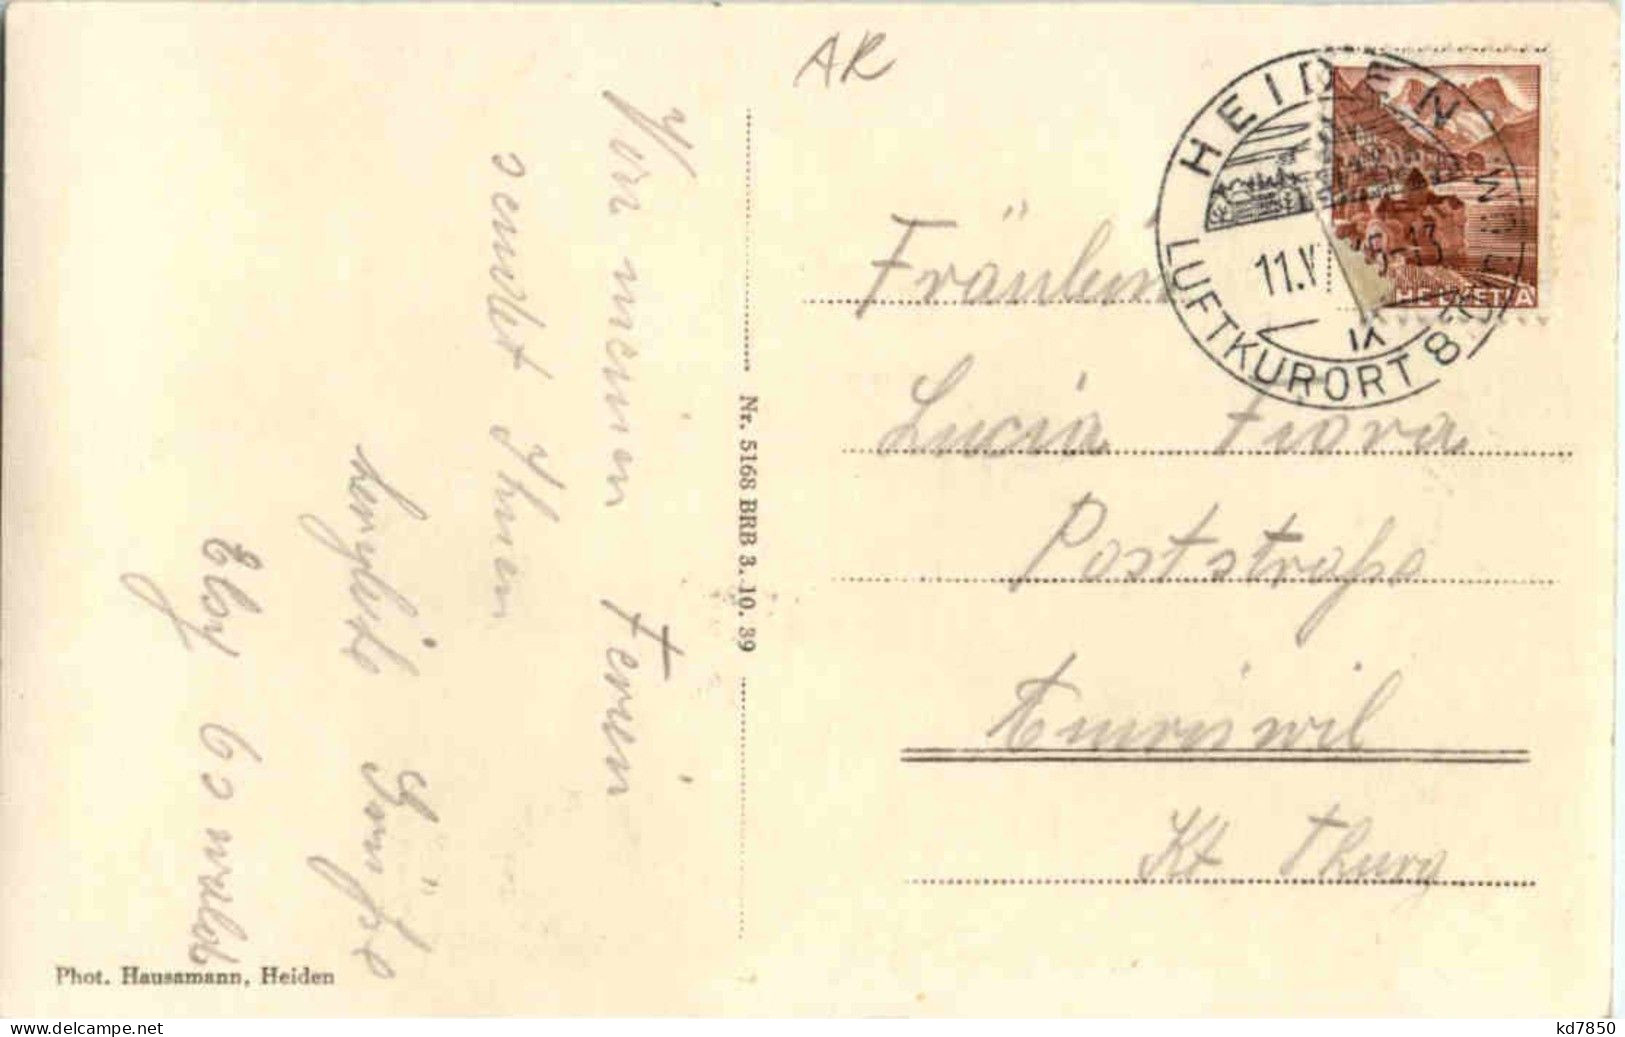 AR
HEIDEN
LUFTKURORT 8
11.V
5-13
IX
HELVETIA
Von meinen Ferien
sendet Ihnen
herzliche Grüße
Elsy
Nr. 5168 BRB 3. 10. 39
Fräulein
Lucia Fiora
Poststraße
Amriswil
Kt Thurg
Phot. Hausamann, Heiden
kd7850
www.delcampe.net